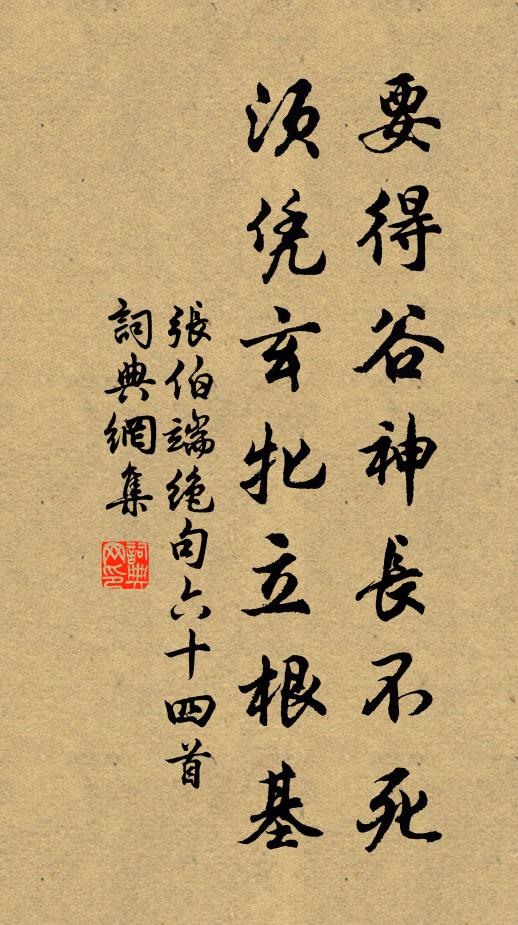 要得谷神長不死
須凭玄牝立根基
張伯端絶句六十四首
詞典網集
詞典
网印